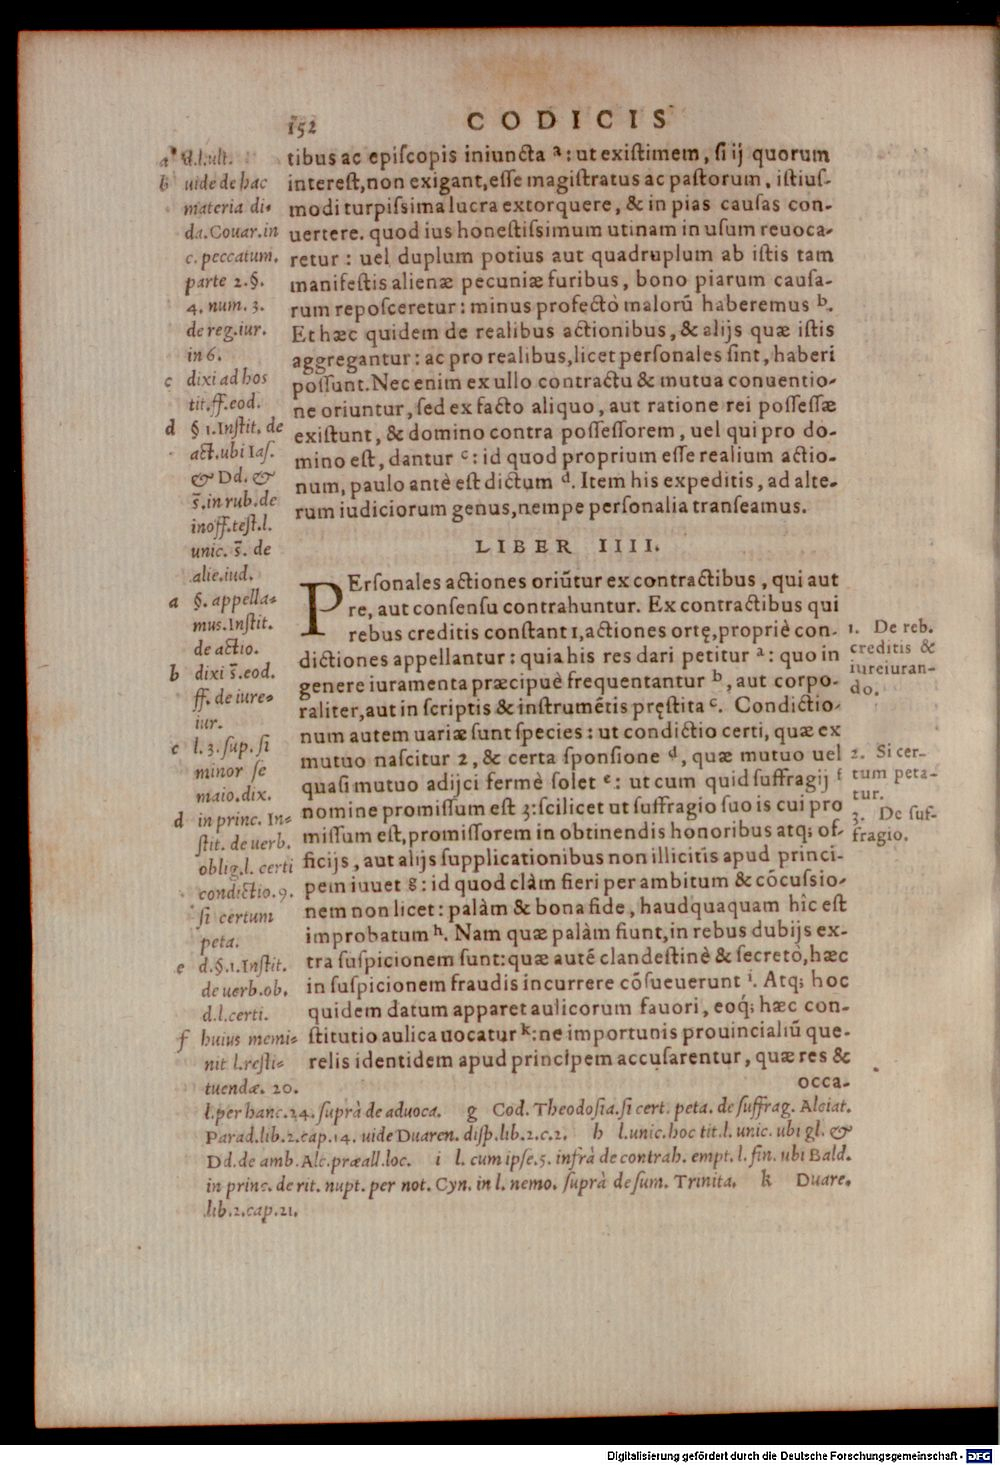 152
CODICIS
tibus ac episcopis iniuncta ª: ut existimem, si ij quorum
interest, non exigant, esse magistratus ac pastorum, istius-
modi turpissima lucra extorquere, & in pias causas con-
uertere. quod ius honestissimum utinam in usum reuoca-
retur: uel duplum potius aut quadruplum ab istis tam
manifestis alienæ pecuniæ furibus, bono piarum causa-
rum reposceretur: minus profectò malorũ haberemus ᵇ.
Et hæc quidem de realibus actionibus, & alijs quæ istis
aggregantur: ac pro realibus, licet personales sint, haberi
possunt. Nec enim ex ullo contractu & mutua conuentio-
ne oriuntur, sed ex facto aliquo, aut ratione rei possessæ
existunt, & domino contra possessorem, uel qui pro do-
mino est, dantur ᶜ: id quod proprium esse realium actio-
num, paulo antè est dictum ᵈ. Item his expeditis, ad alte-
rum iudiciorum genus, nempe personalia transeamus.
a d.l.ult.
b uide de hac
materia di-
da. Couar. in
c. peccatum.
parte 2. §.
4. num. 3.
de reg. iur.
in 6.
c dixi ad hos
tit. ff. eod.
d § 1. Instit. de
act. ubi Ias.
& Dd. &
s̃. in rub. de
inoff. test. l.
unic. s̃. de
alie. iud.
LIBER IIII.
PErsonales actiones oriũtur ex contractibus, qui aut
re, aut consensu contrahuntur. Ex contractibus qui
rebus creditis constant 1, actiones ortę, propriè con-
dictiones appellantur: quia his res dari petitur ª: quo in
genere iuramenta præcipuè frequentantur ᵇ, aut corpo-
raliter, aut in scriptis & instrumẽtis pręstita ᶜ. Condictio-
num autem uariæ sunt species: ut condictio certi, quæ ex
mutuo nascitur 2, & certa sponsione ᵈ, quæ mutuo uel
quasi mutuo adijci fermè solet ᵉ: ut cum quid suffragij ᶠ
nomine promissum est 3: scilicet ut suffragio suo is cui pro
missum est, promissorem in obtinendis honoribus atq; of-
ficijs, aut alijs supplicationibus non illicitis apud princi-
pem iuuet g: id quod clàm fieri per ambitum & cõcussio-
nem non licet: palàm & bona fide, haudquaquam hîc est
improbatum ʰ. Nam quæ palàm fiunt, in rebus dubijs ex-
tra suspicionem sunt: quæ autẽ clandestinè & secretò, hæc
in suspicionem fraudis incurrere cõsueuerunt ⁱ. Atq; hoc
quidem datum apparet aulicorum fauori, eoq́; hæc con-
stitutio aulica uocatur ᵏ: ne importunis prouincialiũ que-
relis identidem apud principem accusarentur, quæ res &
occa-
a §. appella-
mus. Instit.
de actio.
b dixi s̃. eod.
ff. de iure-
iur.
c l. 3. sup. si
minor se
maio. dix.
d in princ. In-
stit. de uerb.
oblig. l. certi
condictio. 9.
si certum
peta.
e d. §. 1. Instit.
de uerb. ob.
d. l. certi.
f huius memi-
nit l. resti-
tuendæ. 20.
1. De reb.
creditis &
iureiuran-
do.
2. Si cer-
tum peta-
tur.
3. De suf-
fragio.
l. per hanc. 24. suprà de aduoca. g Cod. Theodosia. si cert. peta. de suffrag. Alciat.
Parad. lib. 2. cap. 14. uide Duaren. disp. lib. 2. c. 2. h l. unic. hoc tit. l. unic. ubi gl. &
Dd. de amb. Alc. præall. loc. i l. cum ipse. 5. infrà de contrah. empt. l. fin. ubi Bald.
in princ. de rit. nupt. per not. Cyn. in l. nemo. suprà de sum. Trinita. k Duare.
lib. 2. cap. 21.
Digitalisierung gefördert durch die Deutsche Forschungsgemeinschaft - DFG